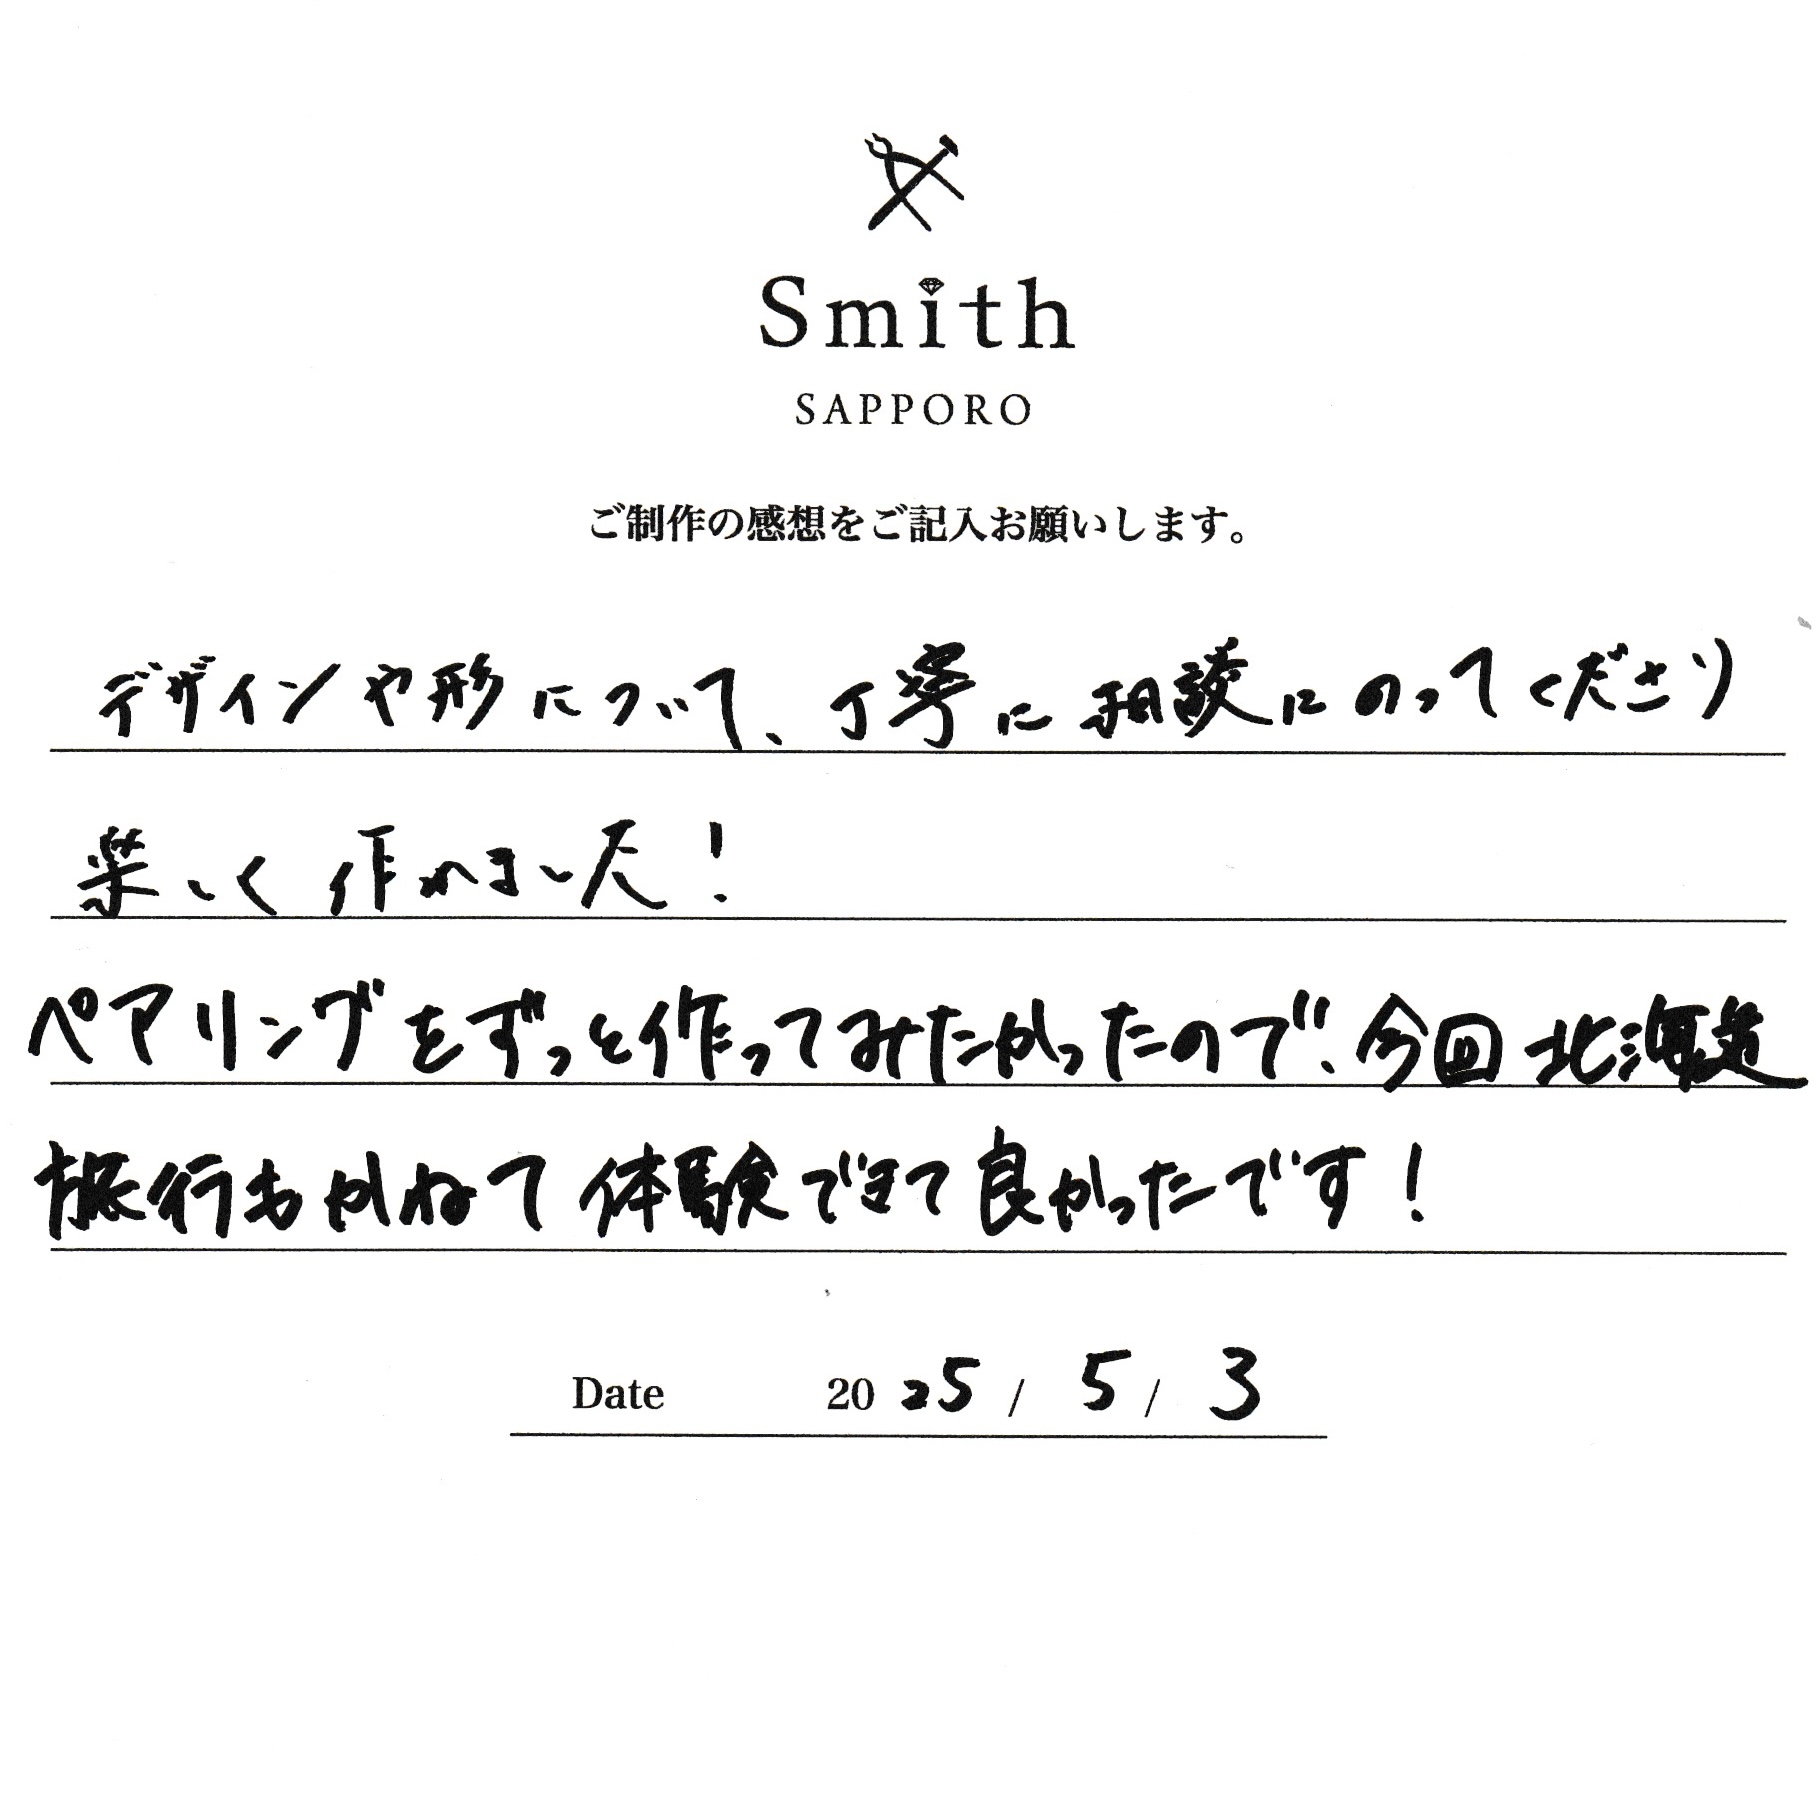 Smith
SAPPORO
ご制作の感想をご記入お願いします。
デザインや形について、丁寧に相談にのってくださり
楽しく作れました!
ペアリングをずっと作ってみたかったので、今回北海道
旅行もかねて体験できて良かったです!
Date 2025/5/3